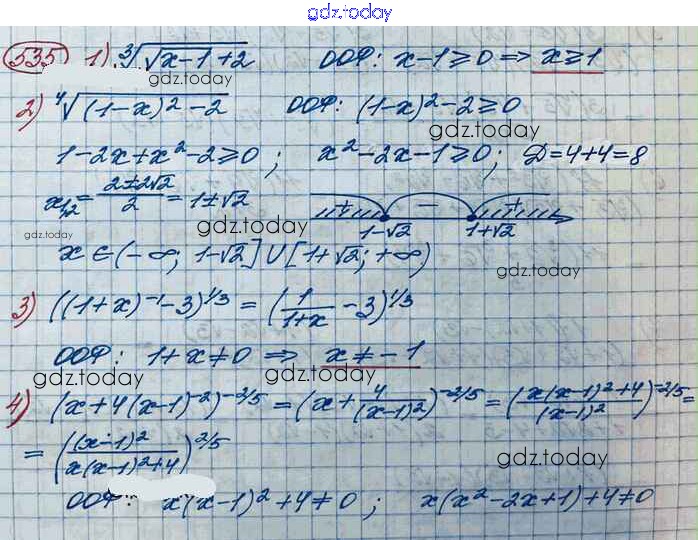 gdz.today
535 1) ∛(√(x-1) + 2) ООФ: x-1 ≥ 0 ⇒ x ≥ 1
gdz.today
2) ∜((1-x)² - 2) ООФ: (1-x)² - 2 ≥ 0
gdz.today
1-2x+x²-2 ≥ 0; x²-2x-1 ≥ 0; D=4+4=8
x₁,₂ = (2±2√2)/2 = 1±√2 + − +
gdz.today gdz.today 1-√2 1+√2
x ∈ (-∞; 1-√2] ∪ [1+√2; +∞)
gdz.today
3) ((1+x)⁻¹-3)^(1/3) = (1/(1+x) - 3)^(1/3)
ООФ: 1+x ≠ 0 ⇒ x ≠ -1
gdz.today gdz.today
4) (x+4(x-1)⁻²)^(-2/5) = (x + 4/(x-1)²)^(-2/5) = ((x(x-1)²+4)/(x-1)²)^(-2/5) =
= ((x-1)²/(x(x-1)²+4))^(2/5)
gdz.today
ООФ: x(x-1)²+4 ≠ 0; x(x²-2x+1)+4 ≠ 0